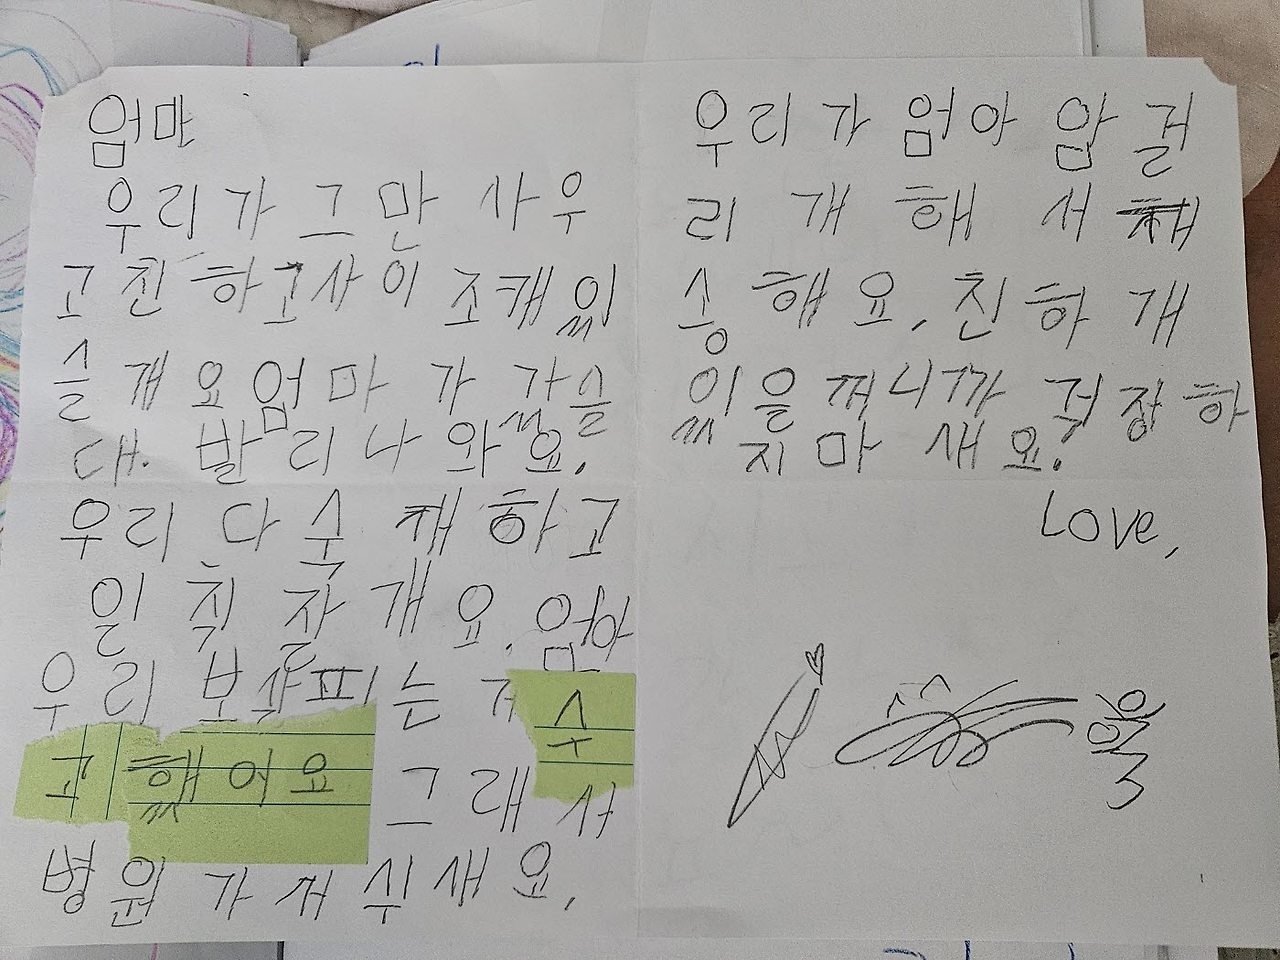 엄마
우리가 그만 사우
고 친하고 사이 조캐 있
슬개요 엄마가 가쓸
대. 발리 나와요.
우리 다 수 개하고
일칙 잘개요. 엄아
우리 보살피는 거 수
고했어요 그래서
병원 가저 쉬새요.
우리가 엄아 암 걸
리개 해서 채
송해요. 친하개
있을꺼니까 걱장하
지마새요.
Love,